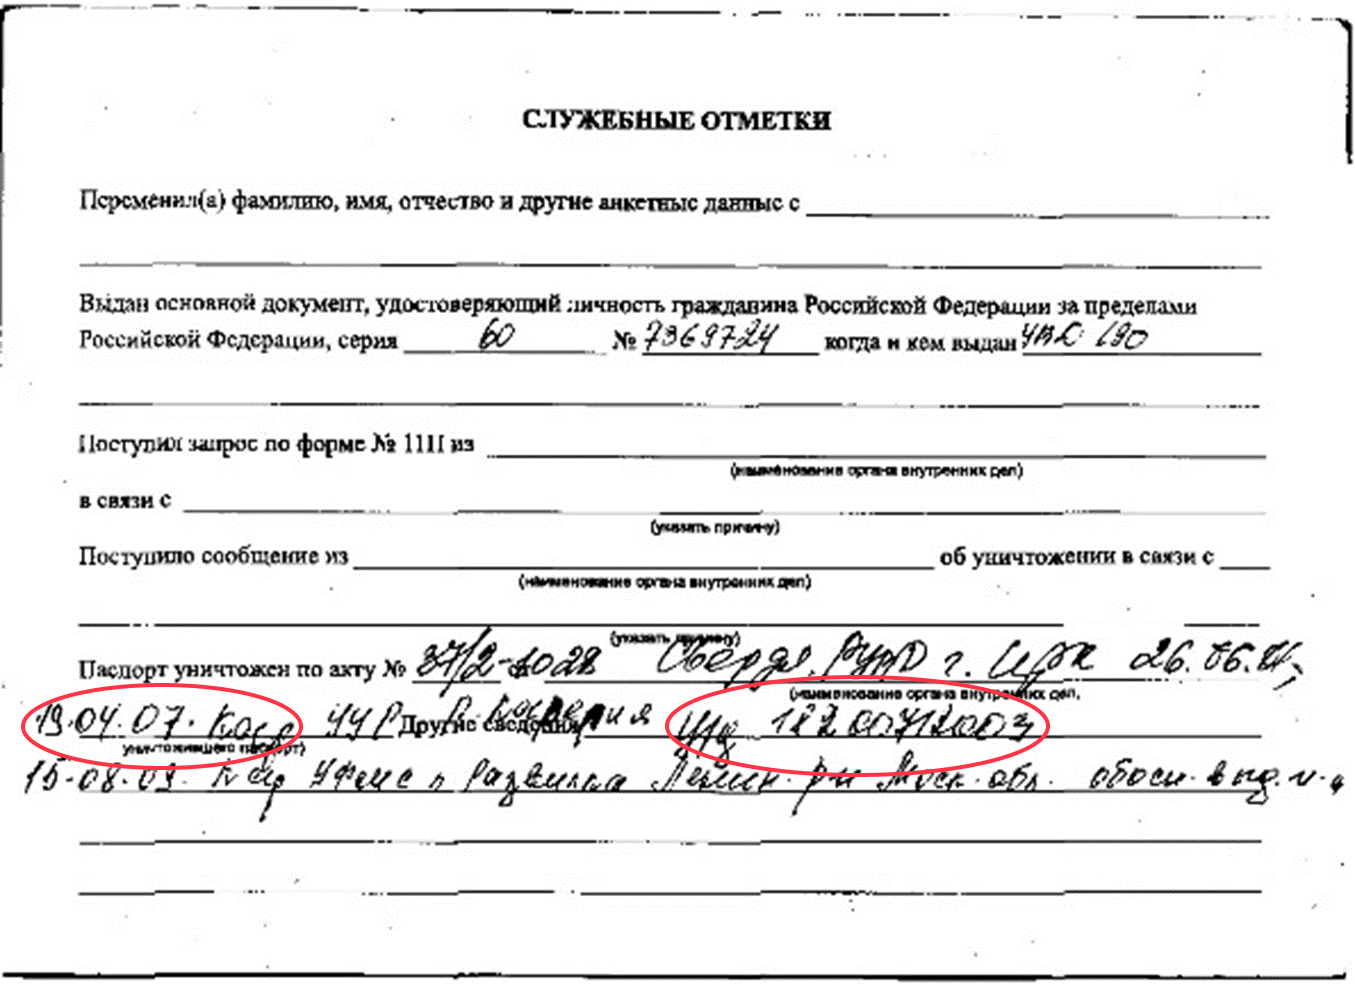 СЛУЖЕБНЫЕ ОТМЕТКИ
Переменил(а) фамилию, имя, отчество и другие анкетные данные с
Выдан основной документ, удостоверяющий личность гражданина Российской Федерации за пределами
Российской Федерации, серия 60 № 7369724 когда и кем выдан УВД 190
Поступил запрос по форме № 11П из
(наименование органа внутренних дел)
в связи с
(указать причину)
Поступило сообщение из об уничтожении в связи с
(наименование органа внутренних дел)
(указать причину)
Паспорт уничтожен по акту № 37/2-1028 г. 26.06.
(наименование органа внутренних дел,
19.04.07. УУР Другие сведения 18200712003
уничтожившего паспорт)
15.08.09. УФМС п Развилка Ленин. р-н Моск. обл.